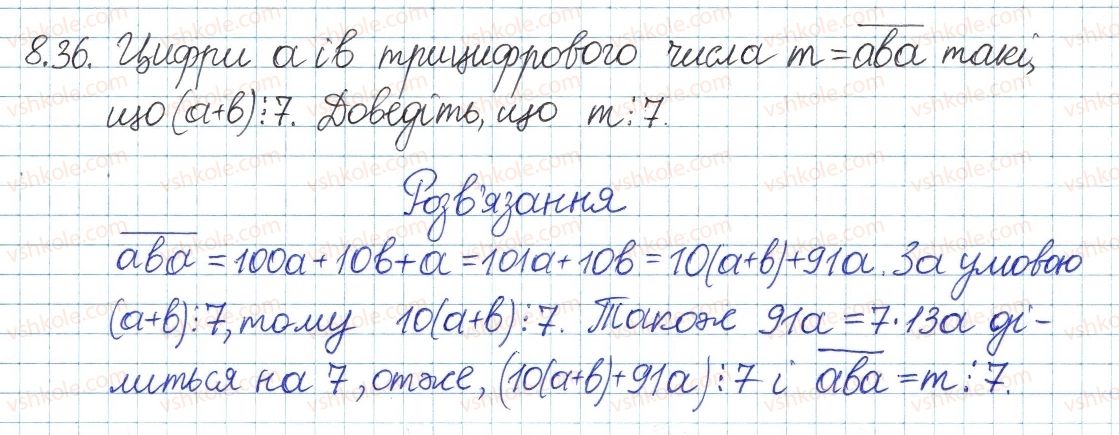 8.36. Цифри a і в трицифрового числа m = aвa такі,
що (a+в)⋮7. Доведіть, що m⋮7.
Розв'язання
aвa = 100a + 10в + a = 101a + 10в = 10(a+в) + 91a. За умовою
(a+в)⋮7, тому 10(a+в)⋮7. Також 91a = 7·13a ді-
литься на 7, отже, (10(a+в) + 91a)⋮7 і aвa = m⋮7.